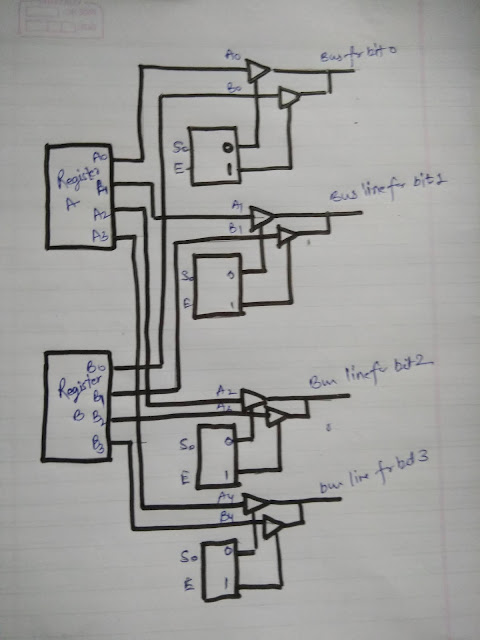 A0
Bus fr bit 0
B0
S0 0
E 1
Register
A
A0
A1
A2
A3
A1
Bus line fr bit 1
B1
S0 0
E 1
Register
B
B0
B1
B2
B3
A2
Bus line fr bit 2
A2
S0 0
E 1
A4
bus line fr bit 3
B4
S0 0
E 1